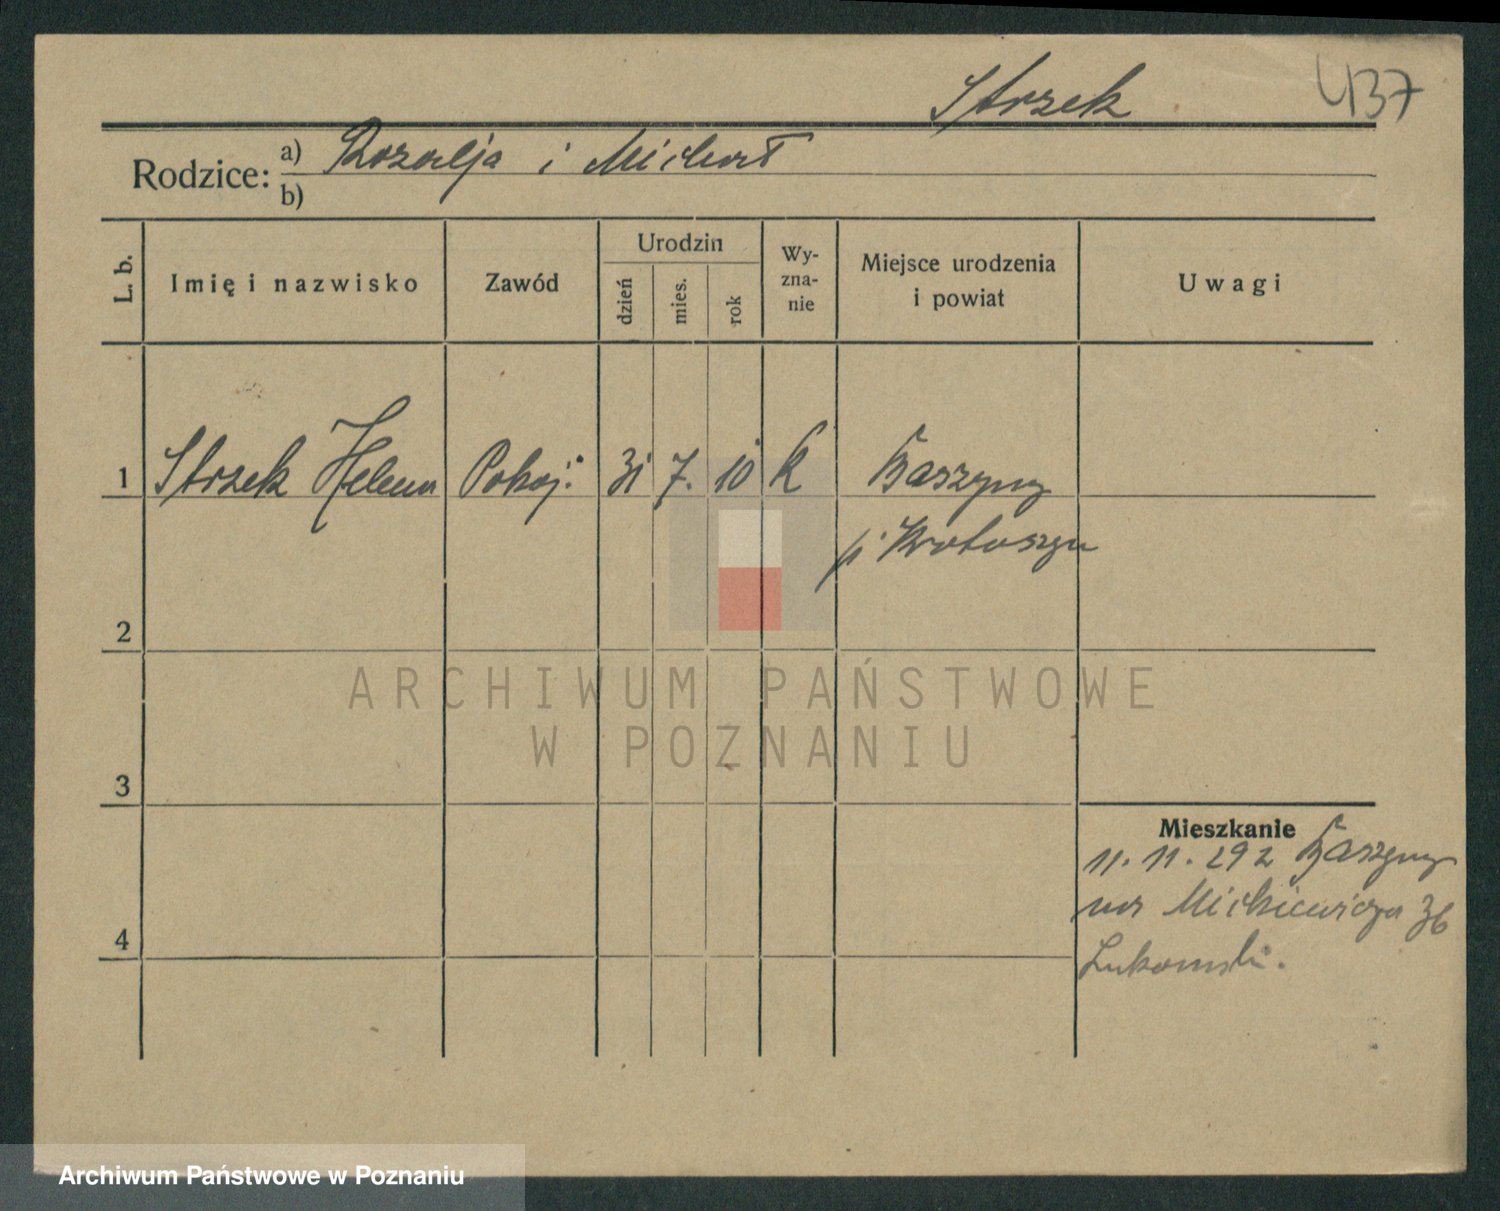 437
Strzek
Rodzice: a) Rozalja i Michał
b)
L. b.
Imię i nazwisko
Zawód
Urodzin
dzień
mies.
rok
Wy-
zna-
nie
Miejsce urodzenia
i powiat
Uwagi
1 Strzek Helena Pokoj. 31 7. 10 k Baszyny
p. Krotoszyn
2
3
4
Mieszkanie
11. 11. 292 Baszyny
na Mickiewicza 36
Łukomski.
ARCHIWUM PAŃSTWOWE
W POZNANIU
Archiwum Państwowe w Poznaniu